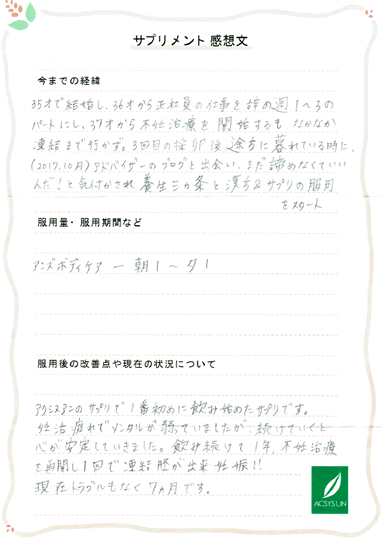 サプリメント 感想文
今までの経緯
35才で結婚し、36才から正社員の仕事を辞め週1〜3の
パートにし、37才から不妊治療を開始するも なかなか
凍結まで行かず。3回目の採卵後 途方に暮れている時に、
(2017.10月) アドバイザーのブログと出会い、まだ諦めなくていい
んだ！と気付かされ 養生三カ条と漢方&サプリの服用
をスタート
服用量・服用期間など
アンズボディケア 一朝1〜夕1
服用後の改善点や現在の状況について
アクシスアンのサプリで1番初めに飲み始めたサプリです。
妊治疲れでメンタルが弱っていましたが、続けていくと
心が安定していきました。飲み続けて1年、不妊治療
を再開し1回で凍結胚が出来 妊娠!!
現在トラブルもなく7ヵ月です。
ACSYS UN